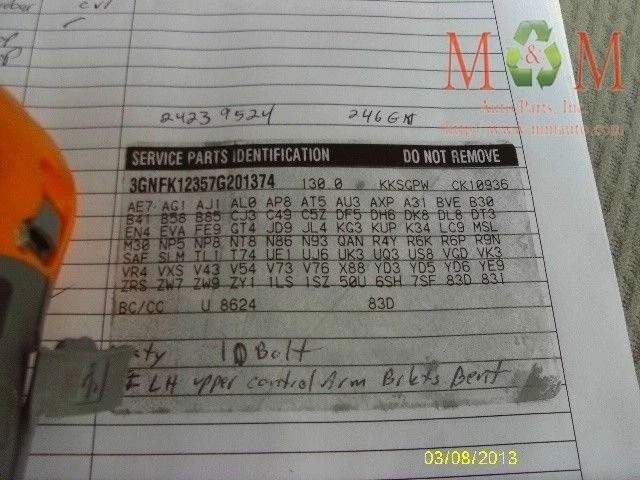 cvr
M & M
Auto Parts, Inc.
24239524 246GN
SERVICE PARTS IDENTIFICATION DO NOT REMOVE
3GNFK12357G201374 130 0 KKSGPW CK10936
AE7 AG1 AJ1 AL0 AP8 AT5 AU3 AXP A31 BVE B30
B41 B58 B85 CJ3 C49 C5Z DF5 DH6 DK8 DL8 DT3
EN4 EVA FE9 GT4 JD9 JL4 KG3 KUP K34 LC9 MSL
M30 NP5 NP8 NT8 N86 N93 QAN R4Y R6K R6P R9N
SAF SLM TL1 T74 UE1 UJ6 UK3 UQ3 US8 VGD VK3
VR4 VXS V43 V54 V73 V76 X88 YD3 YD5 YD6 YE9
ZRS ZW7 ZW9 ZY1 1LS 1SZ 50U 6SH 7SF 83D 83I
BC/CC U 8624 83D
10 Bolt
LH upper control Arm Brkts Bent
03/08/2013